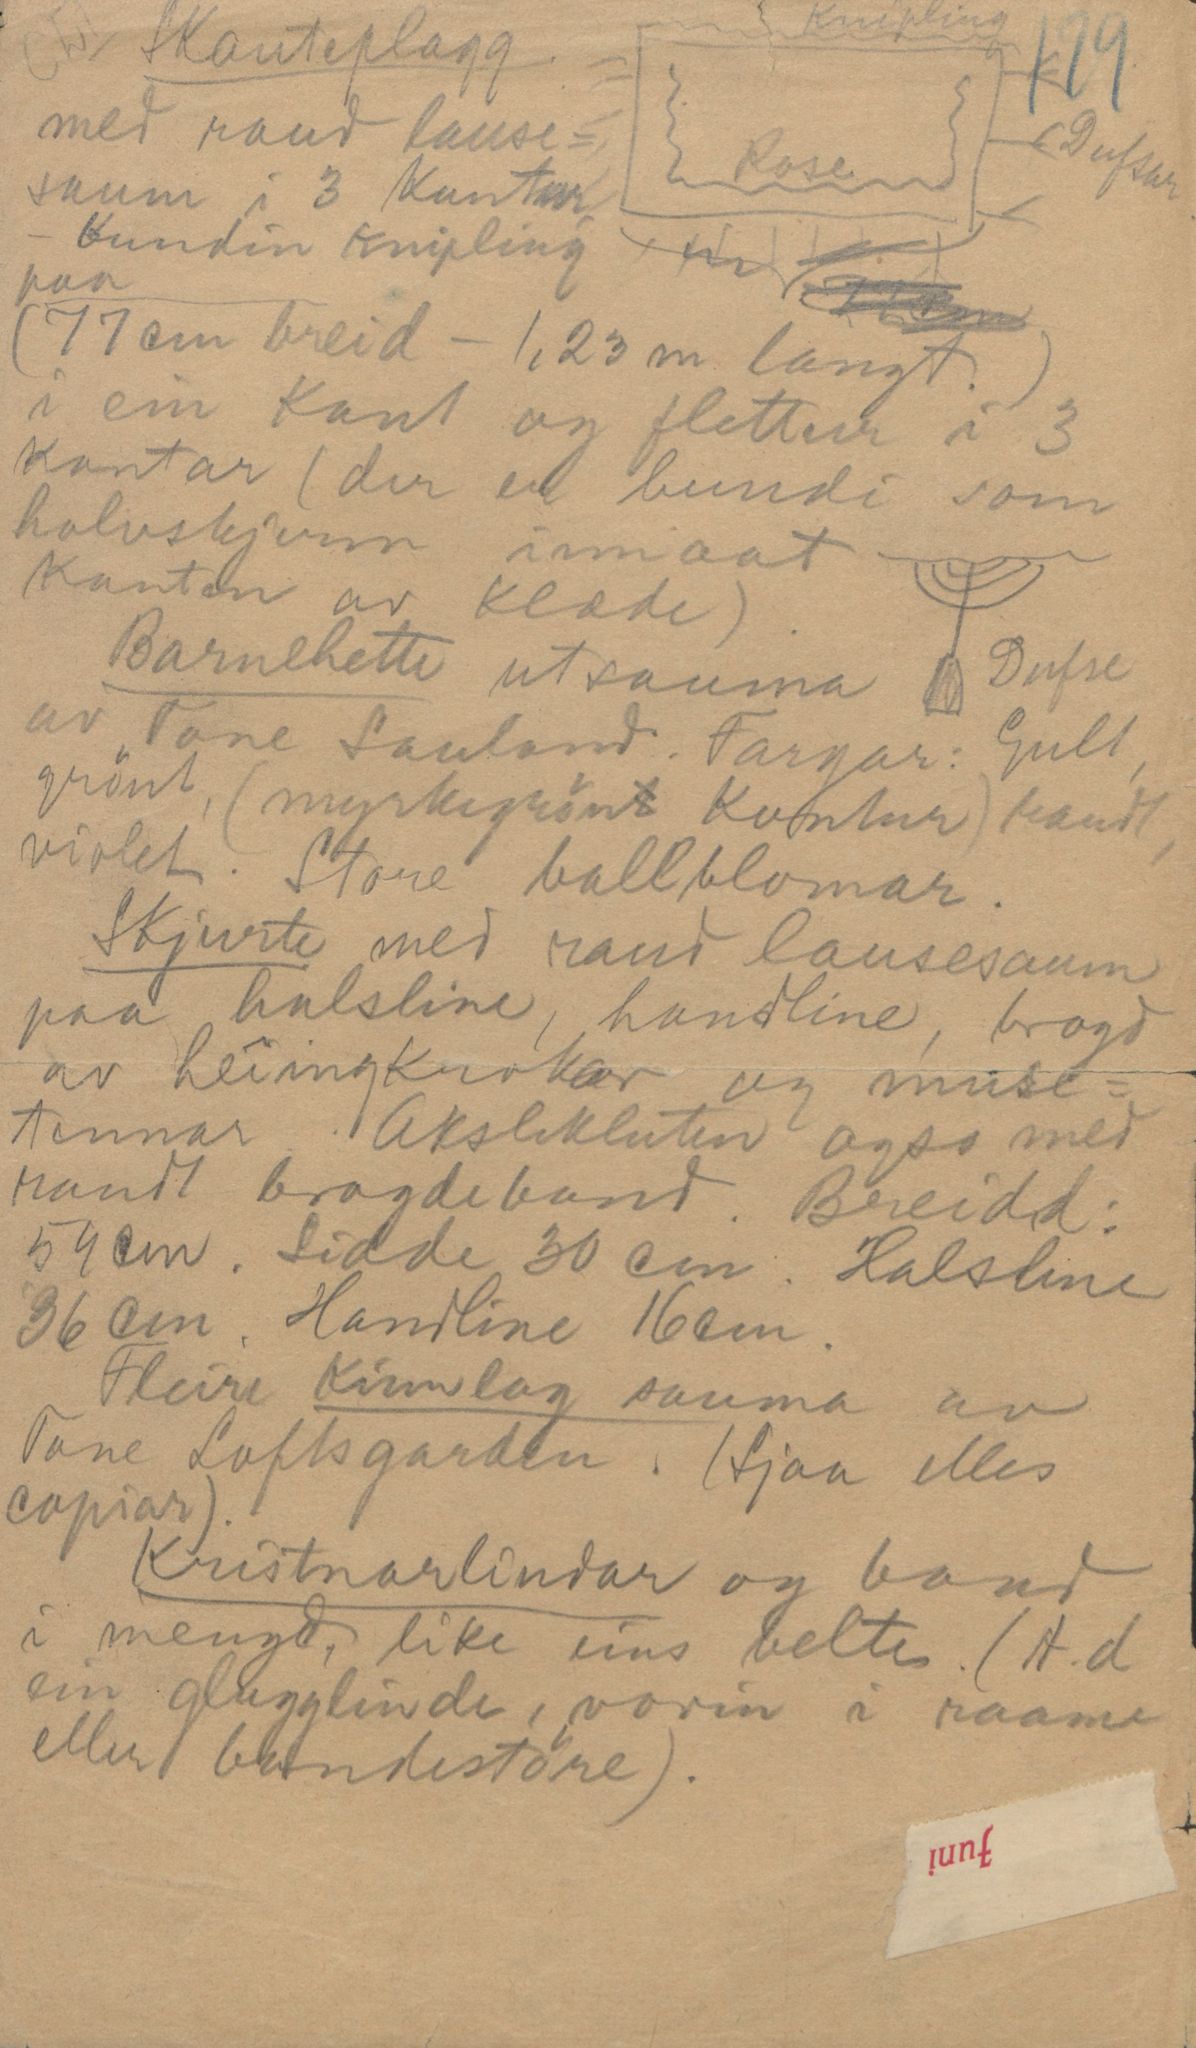 Skauteplagg.
med raud lause=
saum i 3 Kantar
- bundin knipling
paa
(77cm breid - 1,23 m langt.)
i ein Kant og flettur i 3
kantar (der er bundi som
halvskjerm inniaat
Kanten av Klæde).
Knipling
199
Rose
Dufsar
Dufse
Barnehette utsauma
av Tone Sauland. Fargar: Gult,
grönt, (myrkegrönt Kontur) raudt,
violet. Store ballblomar.
Skjurte med raud lausesaum
paa halsline, handline, brogd
av heiingkrokar og muse=
tennar. Akslekluten ogso med
raudt brogdeband. Breidd:
54 cm. Sidde 30 cm. Halsline
36 cm. Handline 16 cm.
Fleire Kinnlag sauma av
Tone Loftsgarden. (Sjaa elles
copiar).
Kristnarlindar og band
i mengd, like eins belte. (A.d
ein glugglinde, vovin i raame
eller bandestöre).
Juni